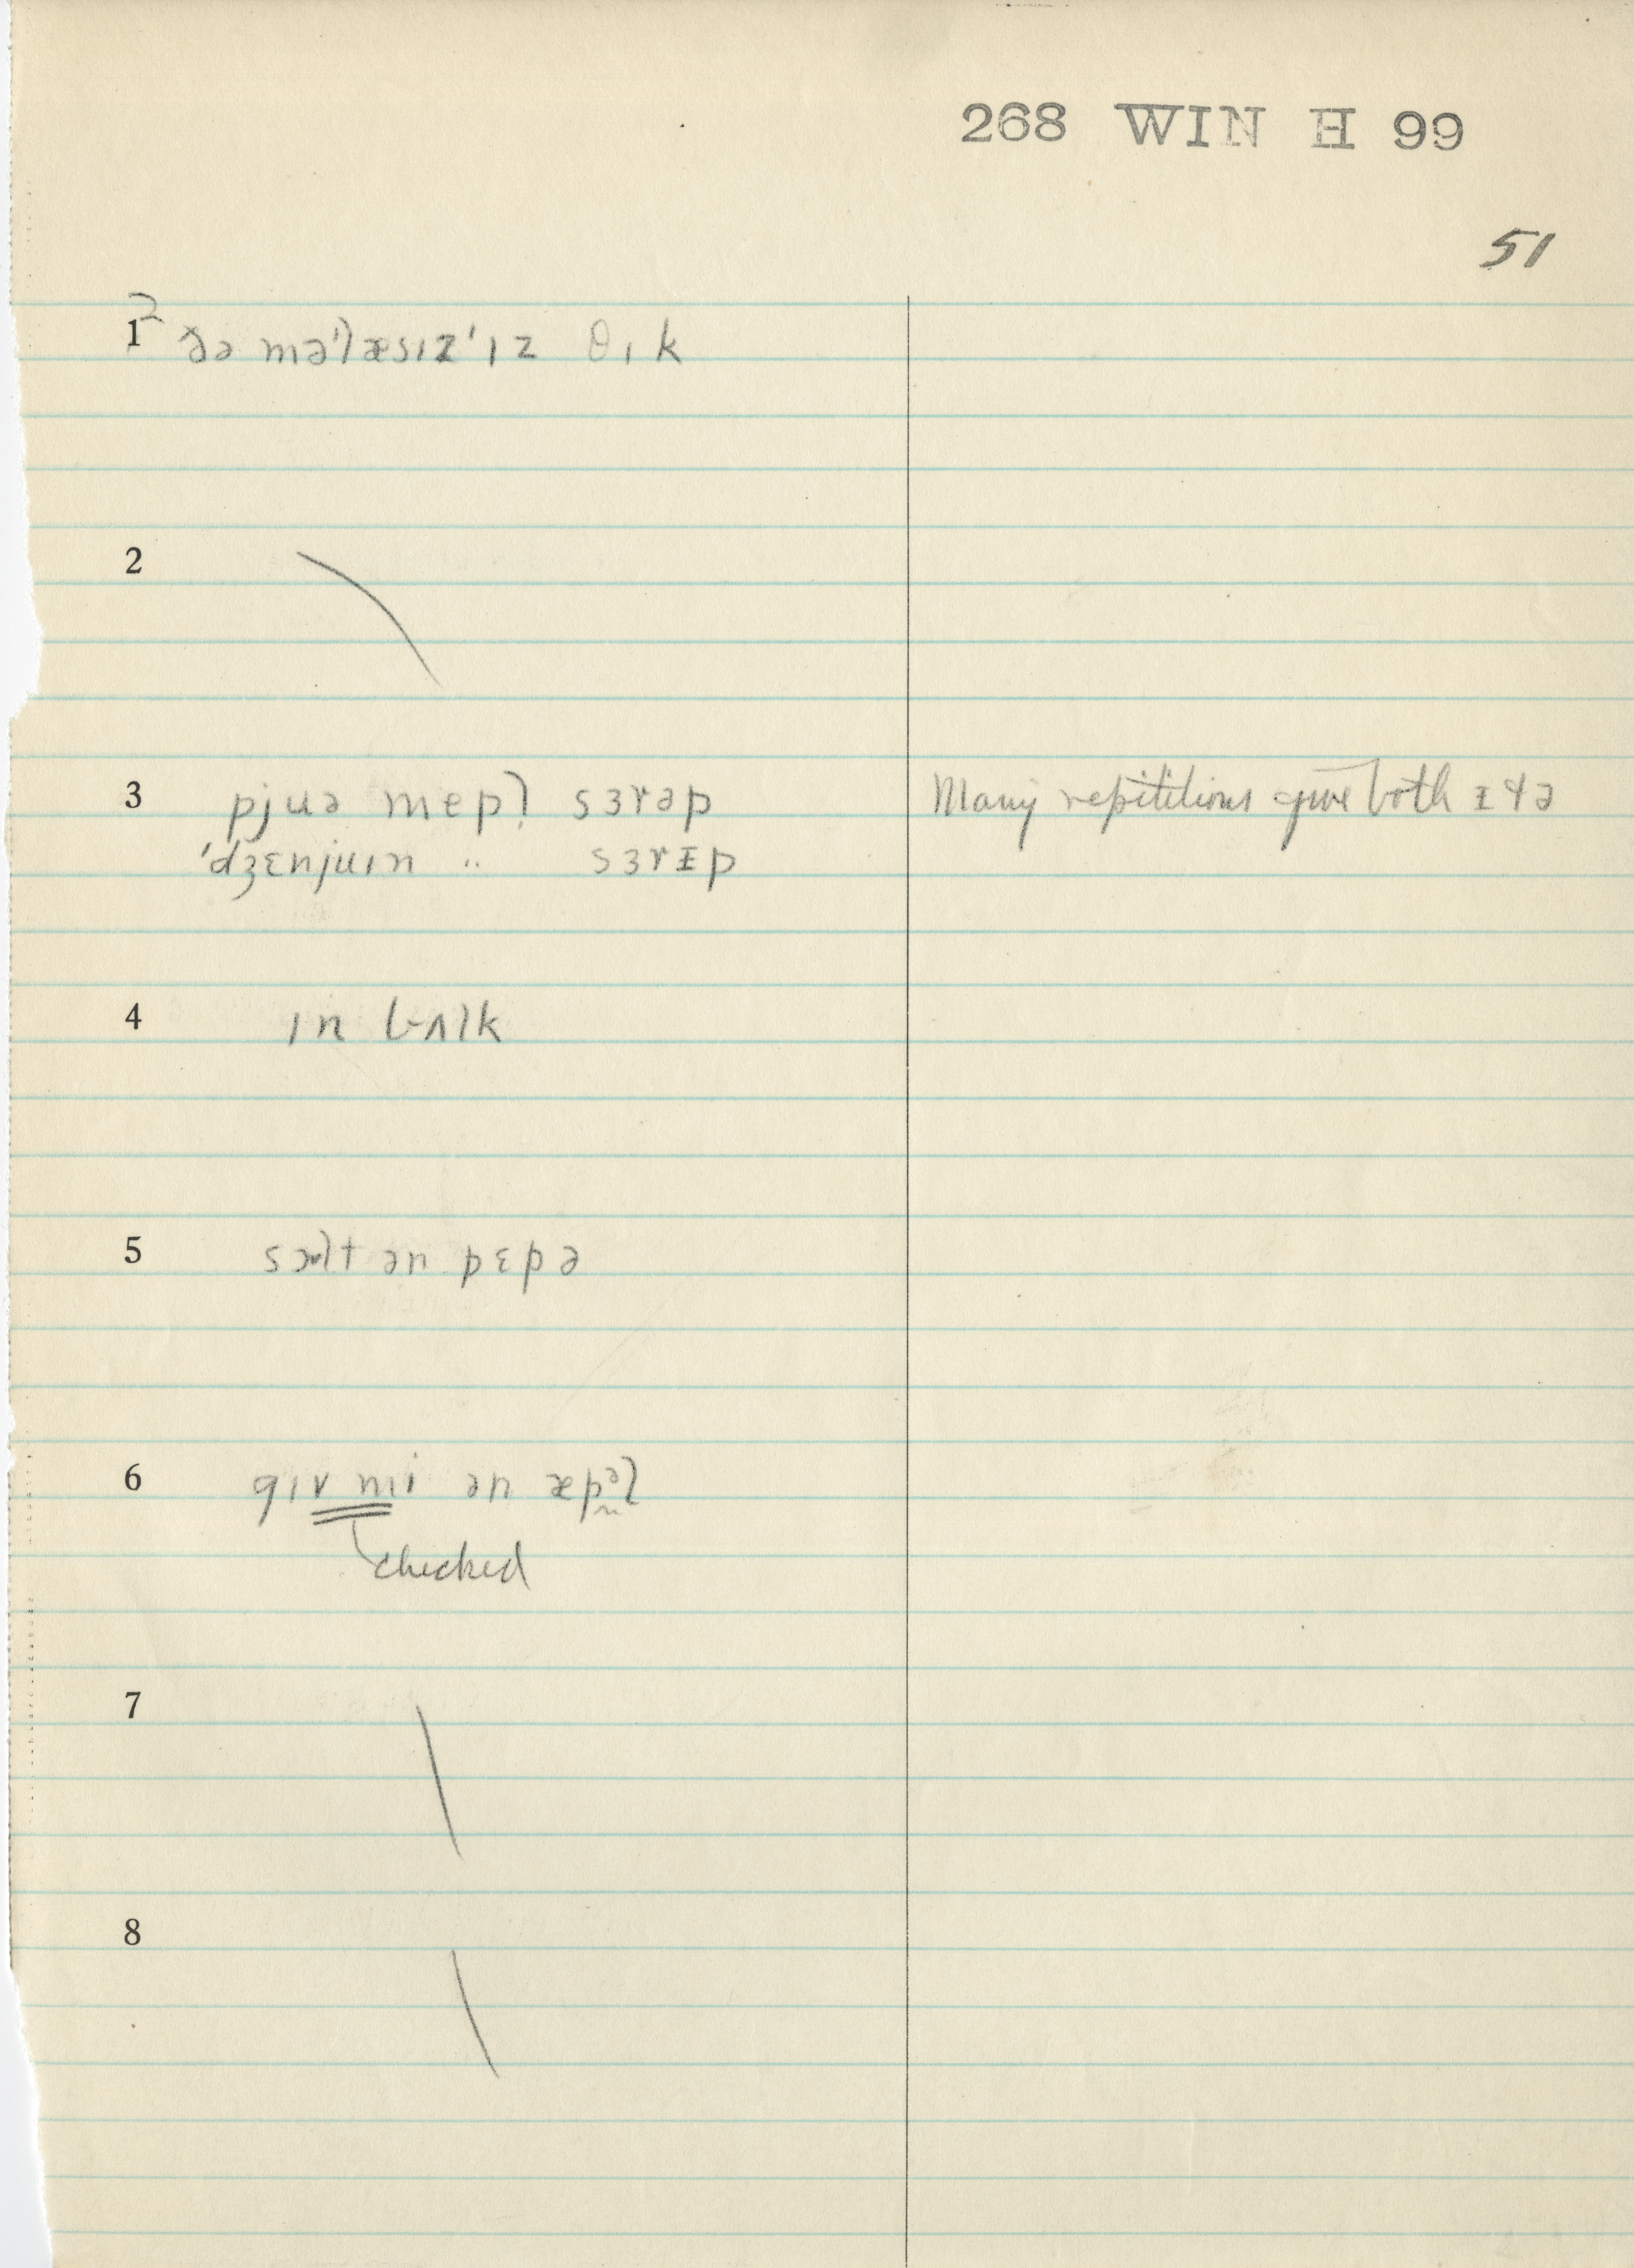 268 WIN H 99
51
1 ? ðə mə'læsɪz'ɪz θɪk
2
3 pjuə mepl sɜrəp Many repititions give both ᵻ & ə
'dʒɛnjuɪn " sɜrᵻp
4 ɪn bʌlk
5 sɔlt ən pɛpə
6 gɪv mi ən æpəl
checked
7
8